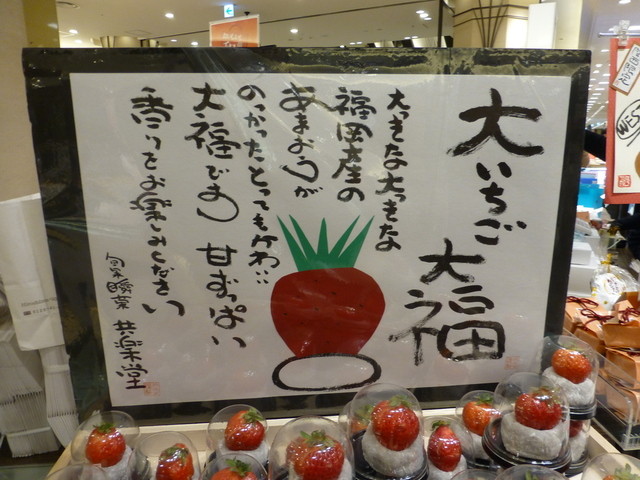 大いちご
大福
大っきな大っきな
福岡産の
あまおうが
のっかったとってもかわいい
大福です。甘ずっぱい
香りをお楽しみください
旬果瞬菓 共楽堂